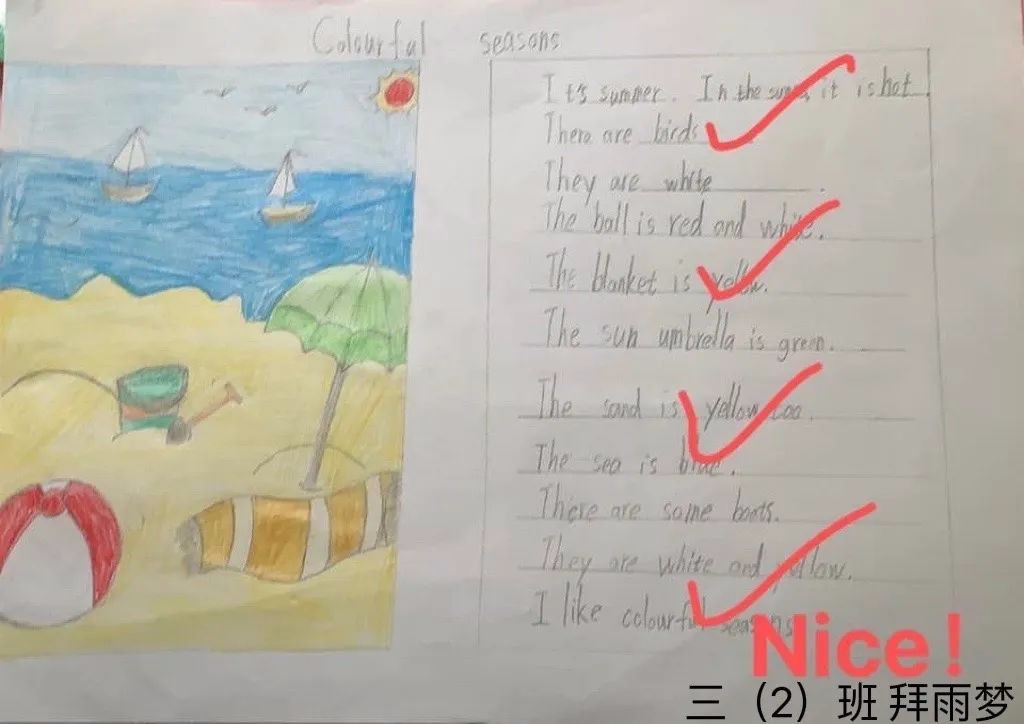 Colourful seasons
It's summer. In the summer, it is hot.
There are birds
They are white.
The ball is red and white.
The blanket is yellow.
The sun umbrella is green.
The sand is yellow too.
The sea is blue.
There are some boats.
They are white and yellow.
I like colourful seasons
Nice!
三（2）班 拜雨梦